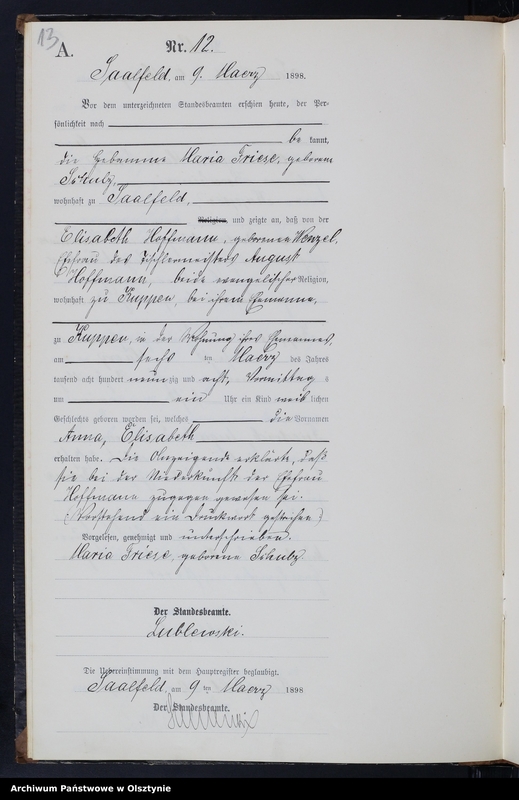 13
A.
Nr. 12.
Saalfeld, am 9. Maerz 1898.
Vor dem unterzeichneten Standesbeamten erschien heute, der Per-
sönlichkeit nach
be kannt,
die Hebamme Maria Friese, geborene
Schulz,
wohnhaft zu Saalfeld,
Religion, und zeigte an, daß von der
Elisabeth Hoffmann, geborenen Wenzel,
Ehefrau des Tischlermeisters August
Hoffmann, beide evangelischer Religion,
wohnhaft zu Kuppen, bei ihrem Ehemanne,
zu Kuppen, in der Wohnung ihres Ehemannes,
am sechs ten Maerz des Jahres
tausend acht hundert neunzig und acht, Vormittag s
um ein Uhr ein Kind weib lichen
Geschlechts geboren worden sei, welches die Vornamen
Anna, Elisabeth
erhalten habe. Die Anzeigende erklärte, daß
sie bei der Niederkunft der Ehefrau
Hoffmann zugegen gewesen sei.
(Vorstehend ein Druckwort gestrichen)
Vorgelesen, genehmigt und unterschrieben.
Maria Friese, geborene Schulz
Der Standesbeamte.
Lublewski.
Die Uebereinstimmung mit dem Hauptregister beglaubigt.
Saalfeld, am 9 ten Maerz 1898
Der Standesbeamte.
Archiwum Państwowe w Olsztynie